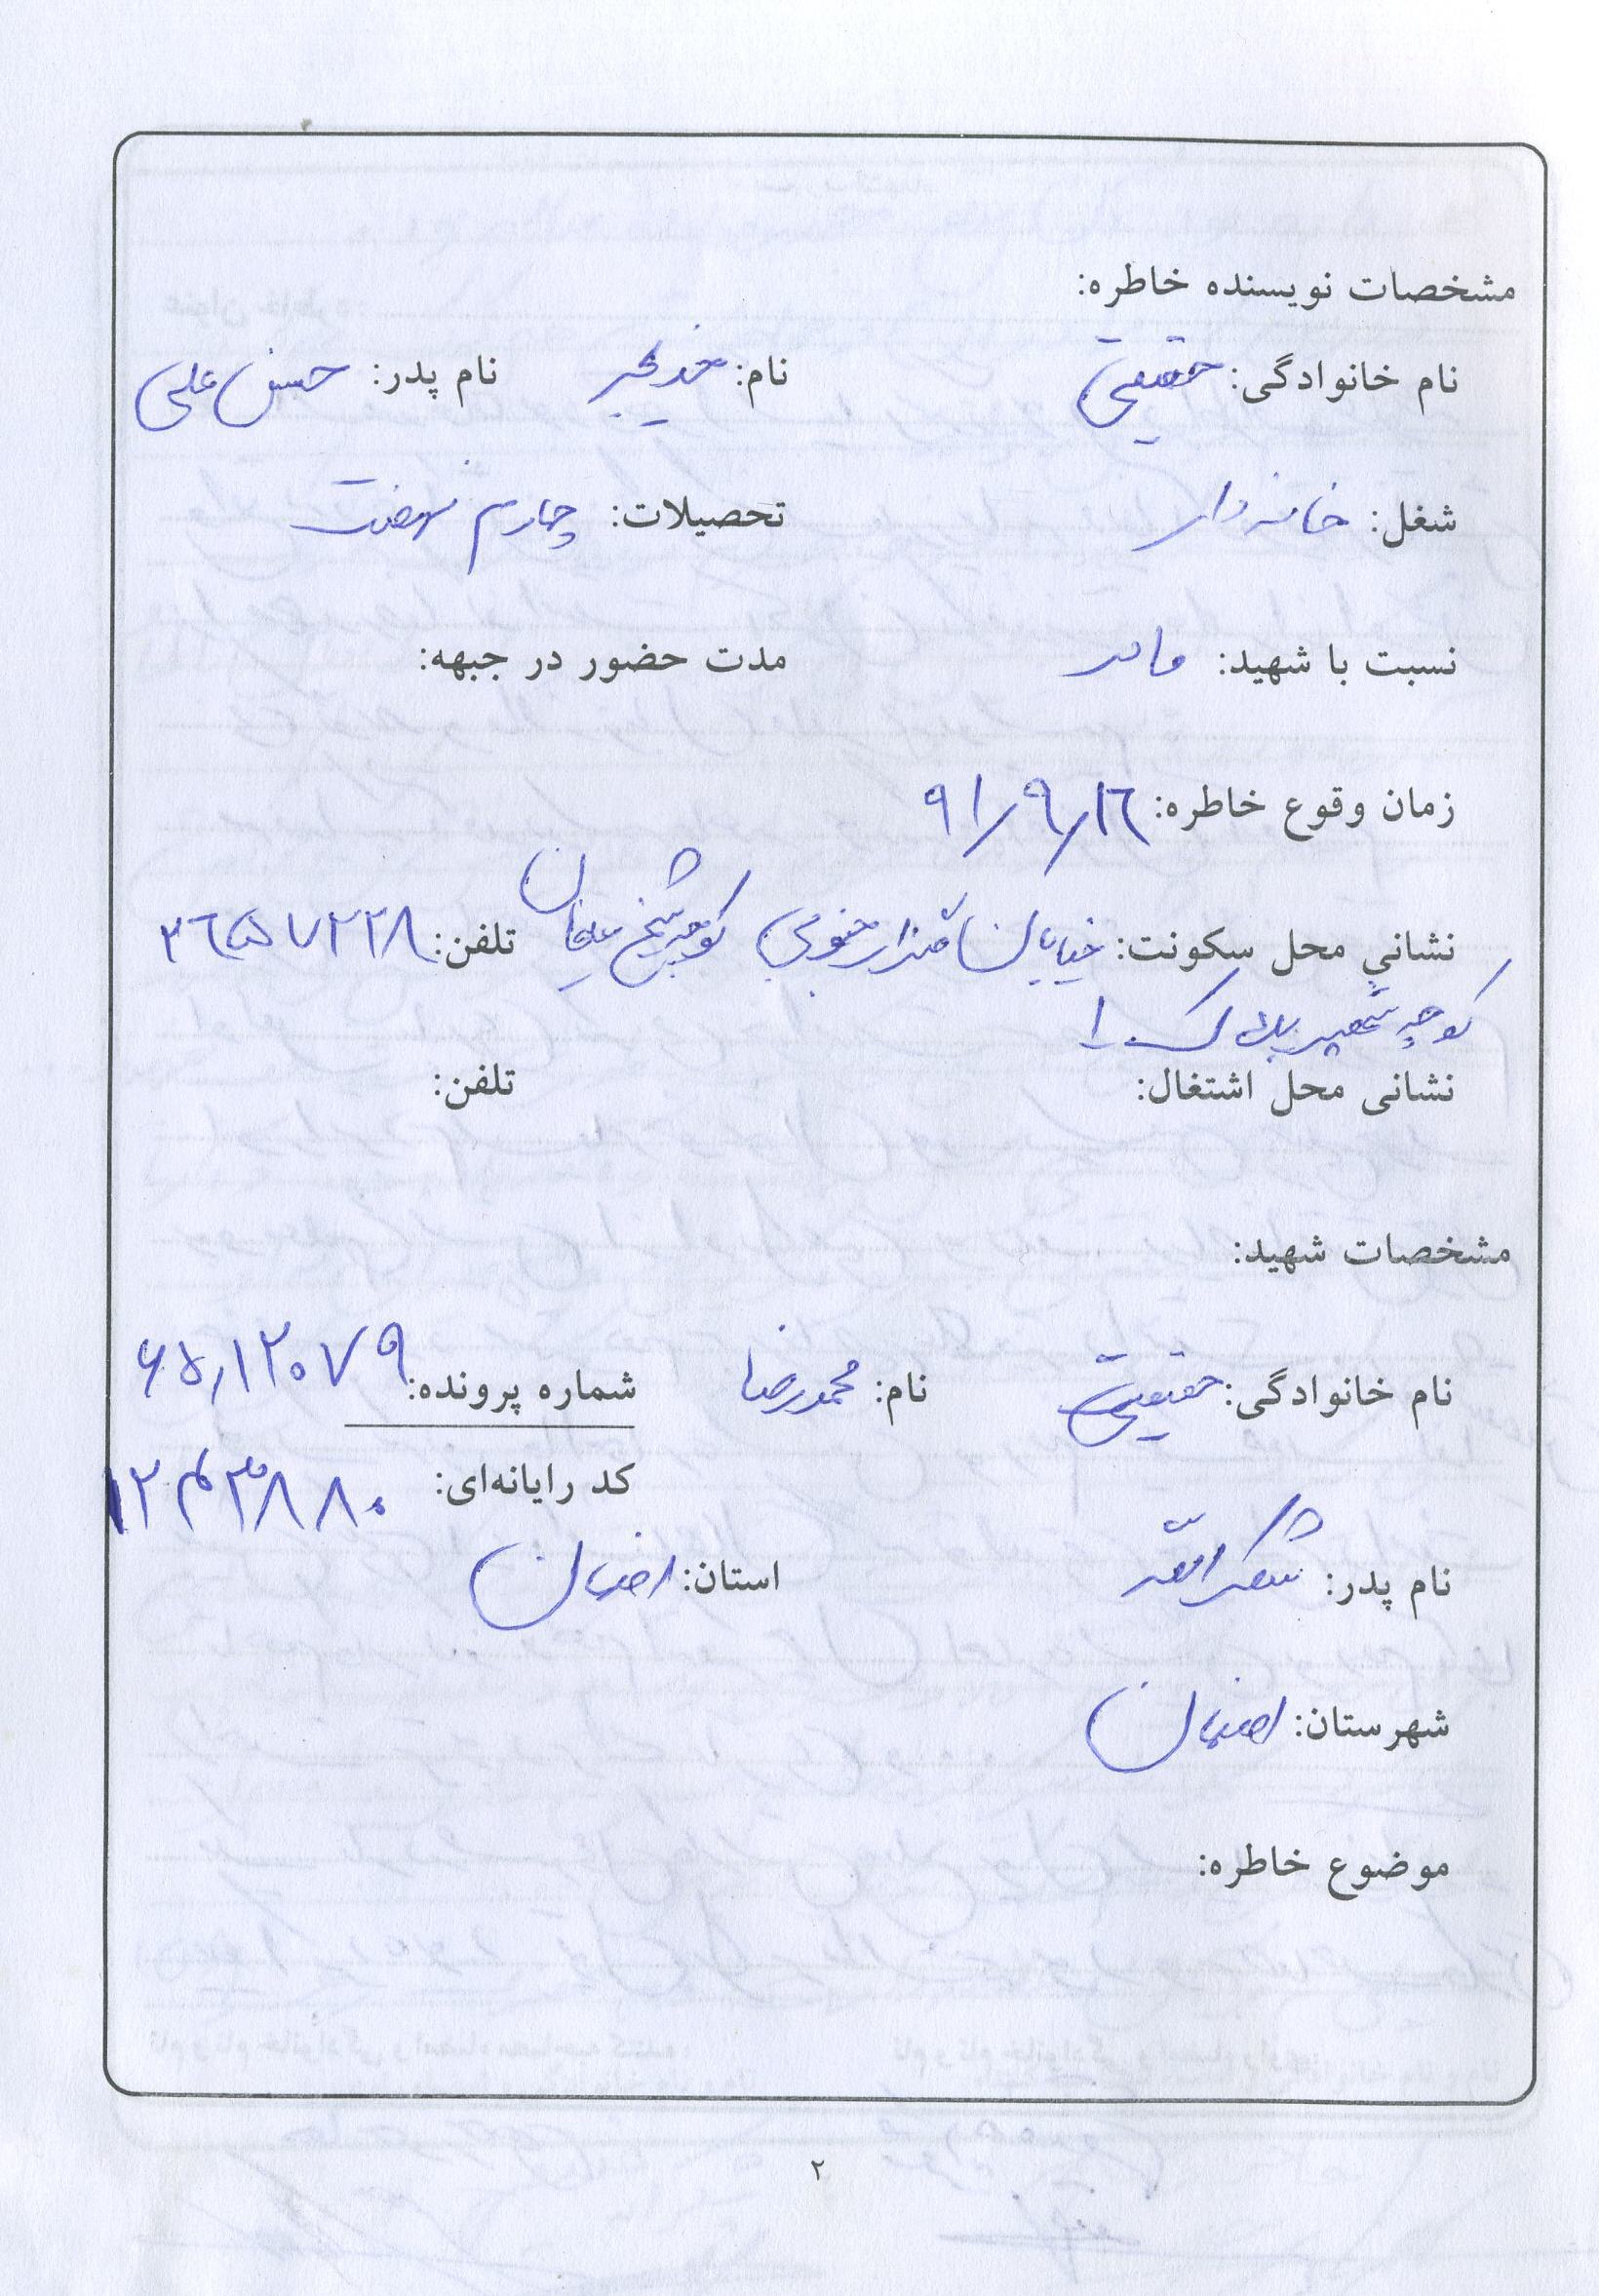 مشخصات نویسنده خاطره:
نام خانوادگی: حقیقی نام: خدیجه نام پدر: حسن علی
شغل: خانه دار تحصیلات: چهارم نهضت
نسبت با شهید: مادر مدت حضور در جبهه:
زمان وقوع خاطره: ۹۱/۹/۱۶
نشانی محل سکونت: خیابان جنوبی کوچه شیخ تلفن: ۳۶۵۷۲۲۸
کوچه پلاک ۱۰
نشانی محل اشتغال: تلفن:
مشخصات شهید:
نام خانوادگی: حقیقی نام: محمدرضا شماره پرونده: ۶۵/۱۲۰۷۹
کد رایانه‌ای: ۱۲۴۳۸۸۰
نام پدر: شکراله استان: اصفهان
شهرستان: اصفهان
موضوع خاطره:
۲